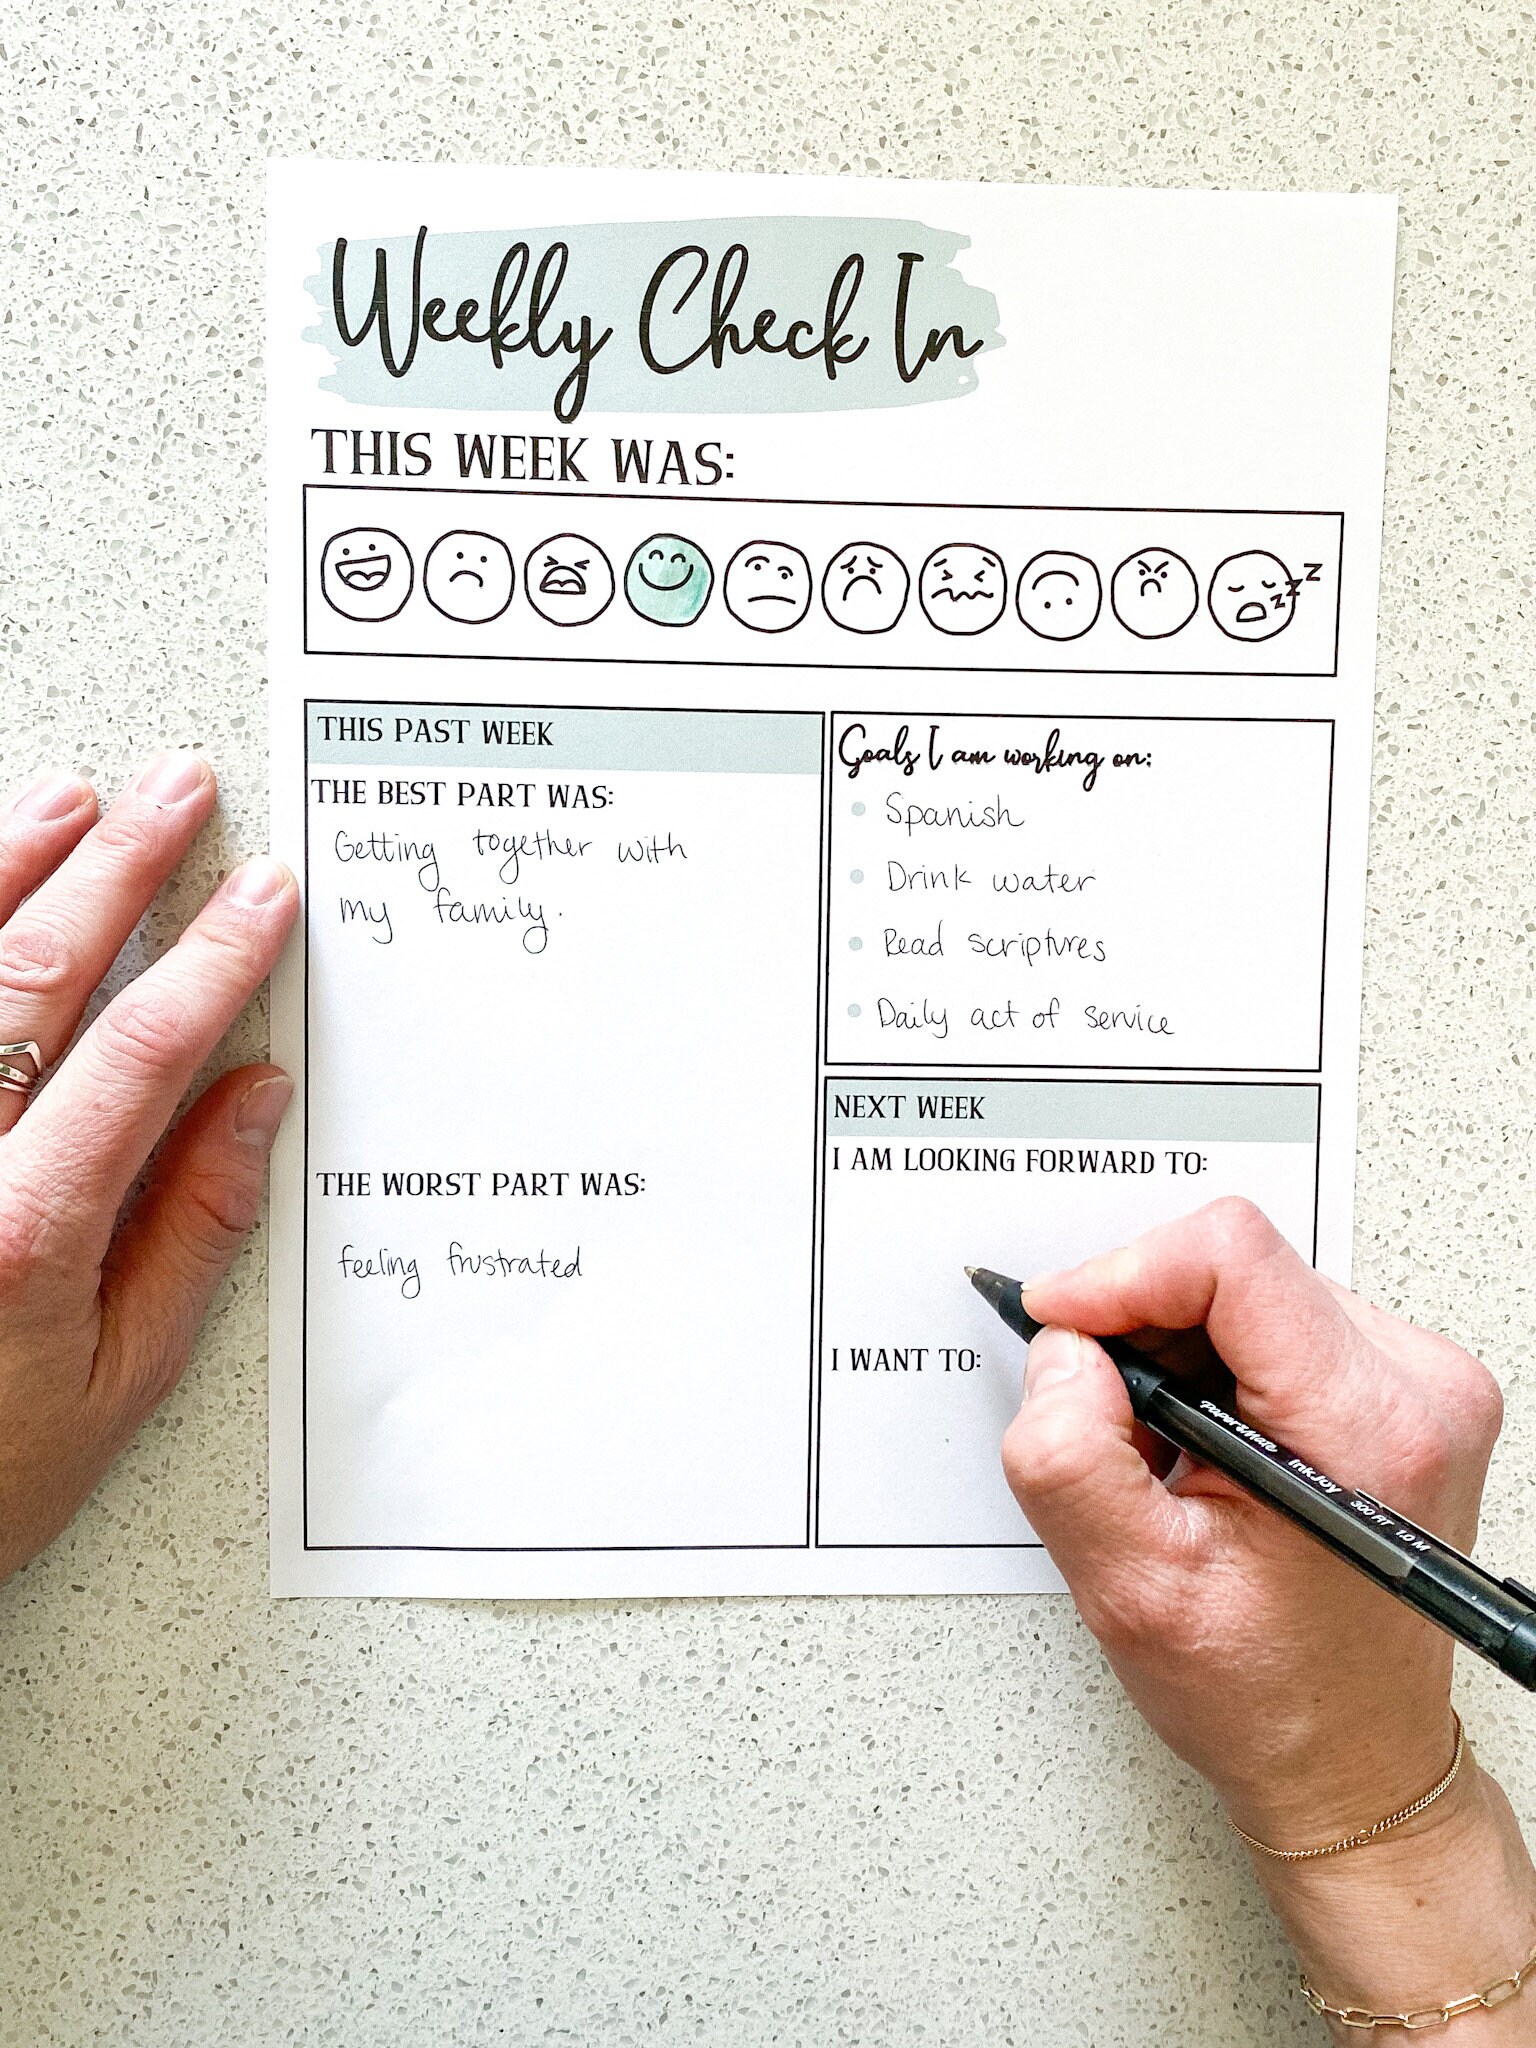 Weekly Check In
THIS WEEK WAS:
z z Z
THIS PAST WEEK
THE BEST PART WAS:
Getting together with
my family.
THE WORST PART WAS:
feeling frustrated
Goals I am working on:
Spanish
Drink water
Read scriptures
Daily act of service
NEXT WEEK
I AM LOOKING FORWARD TO:
I WANT TO:
PAPER MATE InkJoy 300 RT 1.0 M